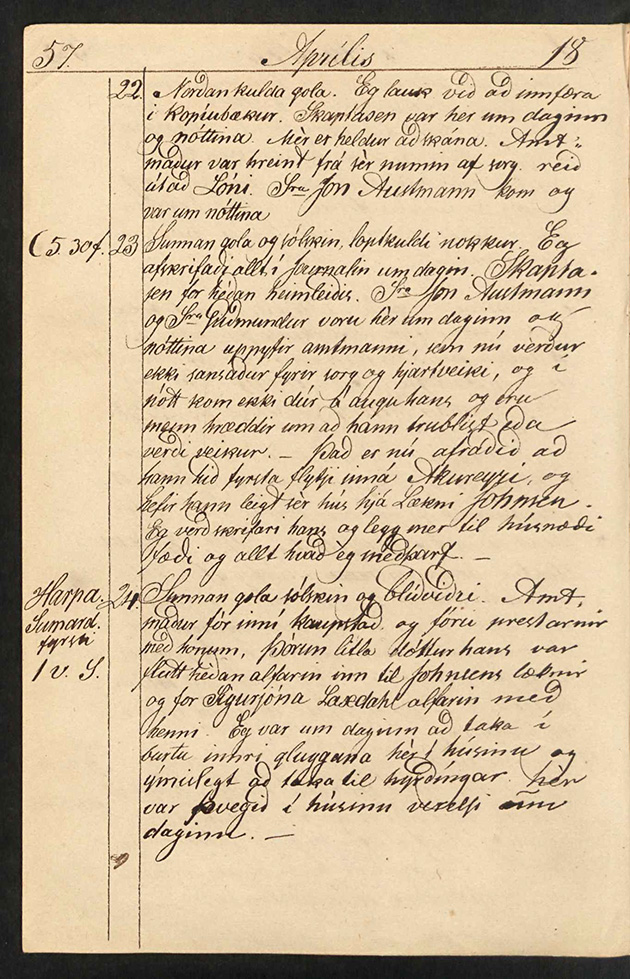 57. Aprílis 18
22 Norðankulda gola. Eg lauk við að innfæra
í Kopíubækur. Skaptasen var her um daginn
og nóttina. Mèr er heldur að skána. Amt-
maður var hreint frá sèr numin af sorg. reið
út að Lóni. Sra Jon Austmann kom og
var um nóttina
(5.30f. 23 Sunnan gola og sólskin, loptkuldi nokkur. Eg
afskrifaði allt í Journalin um dagin. Skapta-
sen fór héðan heimleiðis. Sra Jon Austmann
og Sra Guðmundur voru hèr um daginn og
nóttina uppyfir amtmanni, sem nú verður
ekki sansaður fyrir sorg og hjartveiki, og í
nótt kom ekki dúr á augu hans og eru
menn hræddir um að hann trublist eða
verði veikur. — Það er nú afráðið að
hann hið fyrsta flytji inná Akureyri, og
hefir hann leigt sèr hús hjá Lækni Johnsen.
Eg verð skrifari hans og legg mer til húsnæði
fæði og allt hvað eg meðþarf. —
Harpa. 24. Sunnan gola sólskin og blíðviðri. Amt-
Sumard. maður fór inní kaupstað og fóru prestarnir
fyrsti með honum, Þórun litla dóttur hans var
1 v. S. flutt héðan alfarin inn til Johnsens læknir
og for Sigurjóna Laxdahl alfarin með
henni. Eg var um daginn að taka í
burtu innri gluggana hèr í húsinu og
ýmislegt að taka til hyrðingar. hèr
var þvegið í húsinu verelsi um
daginn. —